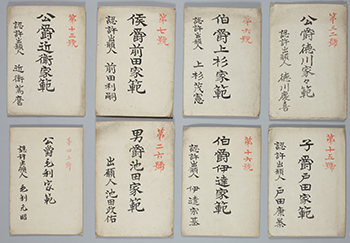 第十三號
公爵近衞家範
認許出願人 近衞篤麿
第七號
侯爵前田家範
認許出願人 前田利嗣
第六號
伯爵上杉家範
認許出願人 上杉茂憲
公爵德川家々範
認許出願人 德川慶喜
公爵毛利家範
認許出願人 毛利元昭
第二六號
男爵池田家範
出願人 池田政佑
第十六號
伯爵伊達家範
認許出願人 伊達宗基
第十五號
子爵戸田家範
認許出願人 戸田康泰